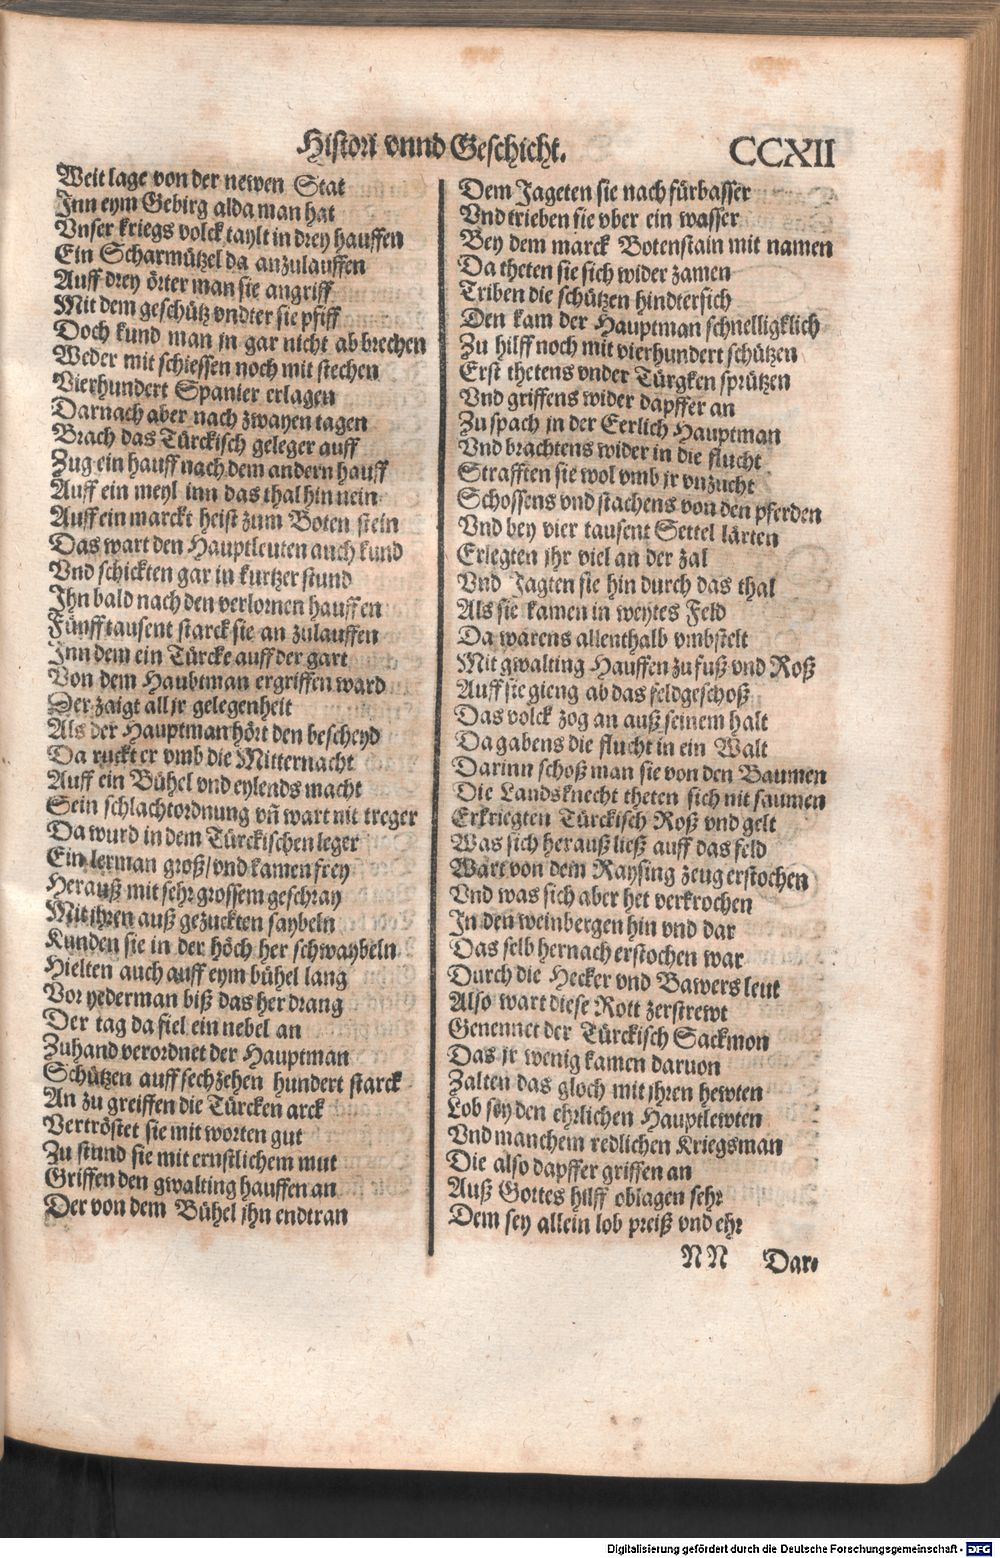 Histori vnnd Geschicht.
CCXII
Weit lage von der newen Stat
Jnn eym Gebirg alda man hat
Vnser kriegs volck taylt in drey hauffen
Ein Scharmützel da anzulauffen
Auff drey örter man sie angriff
Mit dem geschütz vndter sie pfiff
Doch kund man jn gar nicht abbrechen
Weder mit schiessen noch mit stechen
Vierhundert Spanier erlagen
Darnach aber nach zwayen tagen
Brach das Türckisch geleger auff
Zug ein hauff nach dem andern hauff
Auff ein meyl inn das thal hinuein
Auff ein marckt heist zum Botenstein
Das wart den Hauptleuten auch kund
Vnd schickten gar in kurtzer stund
Jhn bald nach den verlornen hauffen
Fünff tausent starck sie an zulauffen
Jnn dem ein Türcke auff der gart
Von dem Haubtman ergriffen ward
Der zaigt all jr gelegenheit
Als der Hauptman hört den bescheyd
Da ruckt er vmb die Mitternacht
Auff ein Bühel vnd eylends macht
Sein schlachtordnung vñ wart nit treger
Da wurd in dem Türckischen leger
Ein lerman groß/vnd kamen frey
Herauß mit sehr grossem geschray
Mit jhren auß gezuckten saybeln
Kunden sie in der höch her schwaybeln
Hielten auch auff eym bühel lang
Vor yederman biß das her drang
Der tag da fiel ein nebel an
Zuhand verordnet der Hauptman
Schützen auff sechzehen hundert starck
An zu greiffen die Türcken arck
Vertröstet sie mit worten gut
Zu stund sie mit ernstlichem mut
Griffen den gwalting hauffen an
Der von dem Bühel jhn endtran
Dem Jageten sie nach fürbasser
Vnd trieben sie vber ein wasser
Bey dem marck Botenstain mit namen
Da theten sie sich wider zamen
Triben die schützen hindtersich
Den kam der Hauptman schnelligklich
Zu hilff noch mit vierhundert schützen
Erst thetens vnder Türgken sprützen
Vnd griffens wider dapffer an
Zu spach jn der Eerlich Hauptman
Vnd brachtens wider in die flucht
Strafften sie wol vmb jr vnzucht
Schossens vnd stachens von den pferden
Vnd bey vier tausent Settel lärten
Erlegten jhr viel an der zal
Vnd Jagten sie hin durch das thal
Als sie kamen in weytes Feld
Da warens allenthalb vmbstelt
Mit gwalting Hauffen zu fuß vnd Roß
Auff sie gieng ab das feldgeschoß
Das volck zog an auß seinem halt
Da gabens die flucht in ein Walt
Darinn schoß man sie von den Baumen
Die Landsknecht theten sich nit saumen
Erkriegten Türckisch Roß vnd gelt
Was sich herauß ließ auff das feld
Wart von dem Raysing zeug erstochen
Vnd was sich aber het verkrochen
Jn den weinbergen hin vnd dar
Das selb hernach erstochen war
Durch die Hecker vnd Bawersleut
Also wart diese Rott zerstrewt
Genennet der Türckisch Sackmon
Das jr wenig kamen daruon
Zalten das gloch mit jhren hewten
Lob sey den ehrlichen Hauptlewten
Vnd manchem redlichen Kriegsman
Die also dapffer griffen an
Auß Gottes hilff oblagen sehr
Dem sey allein lob preiß vnd ehr
NN Dar⸗
Digitalisierung gefördert durch die Deutsche Forschungsgemeinschaft - DFG